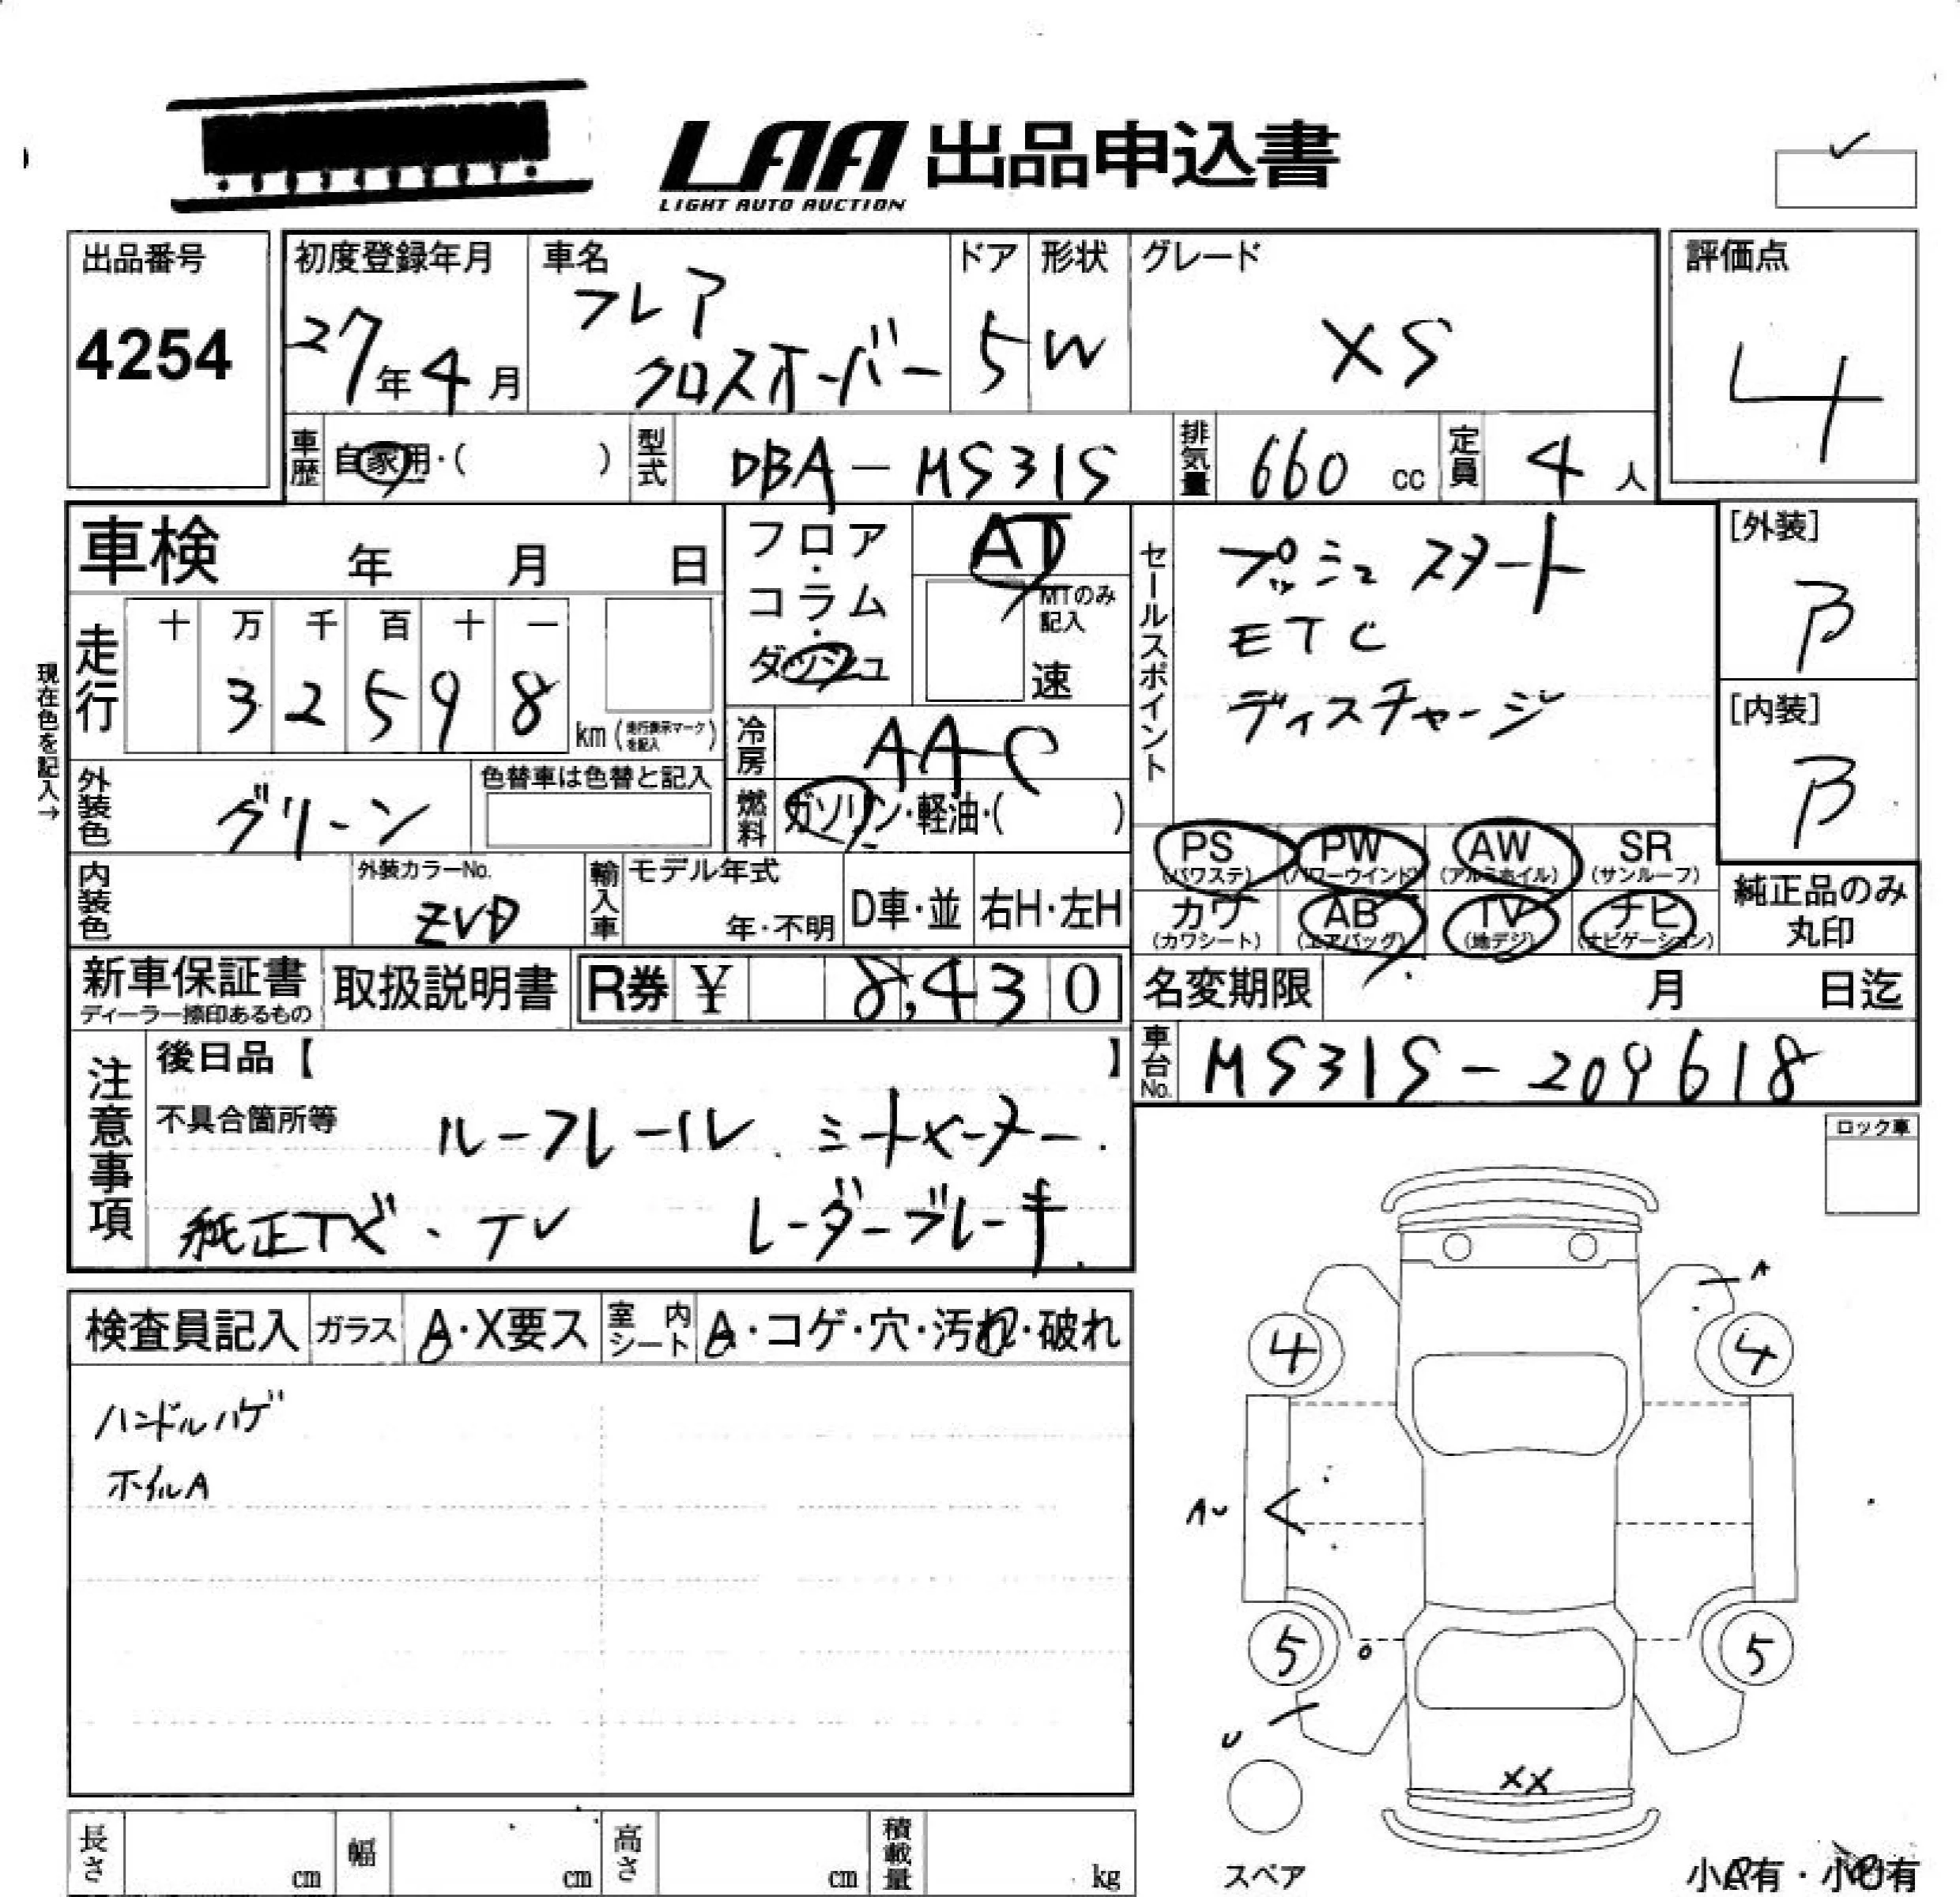 LAA 出品申込書
LIGHT AUTO AUCTION
出品番号
4254
初度登録年月
27年4月
車名
フレア
クロスオーバー
ドア
5
形状
W
グレード
XS
評価点
4
車歴 自家用・( )
型式 DBA-MS31S
排気量 660 cc
定員 4 人
車検 年 月 日
フロア・コラム・ダッシュ
AT
MTのみ記入
速
セールスポイント
プッシュスタート
ETC
ディスチャージ
[外装]
B
[内装]
B
現在色を記入→
走行
十 万 千 百 十 一
3 2 5 9 8
km(走行表示マークを記入)
冷房 AAC
燃料 ガソリン・軽油・( )
外装色 グリーン
色替車は色替と記入
PS (パワステ) PW (パワーウインド) AW (アルミホイル) SR (サンルーフ)
カワ (カワシート) AB (エアバッグ) TV (地デジ) ナビ (ナビゲーション)
純正品のみ丸印
内装色
外装カラーNo.
ZVD
輸入車
モデル年式
年・不明
D車・並
右H・左H
新車保証書
ディーラー捺印あるもの
取扱説明書
R券 ¥ 8,430
名変期限 月 日迄
車台No. MS31S-209618
注意事項
後日品【 】
不具合箇所等
ルーフレール、シートヒーター.
純正ナビ・TV レーダーブレーキ
ロック車
検査員記入
ガラス A・X要ス
室内シート A・コゲ・穴・汚れ・破れ
ハンドルハゲ
ホイルA
A
4 4
AU
5 5
U
XX
スペア
長さ cm
幅 cm
高さ cm
積載量 kg
小A有・小U有